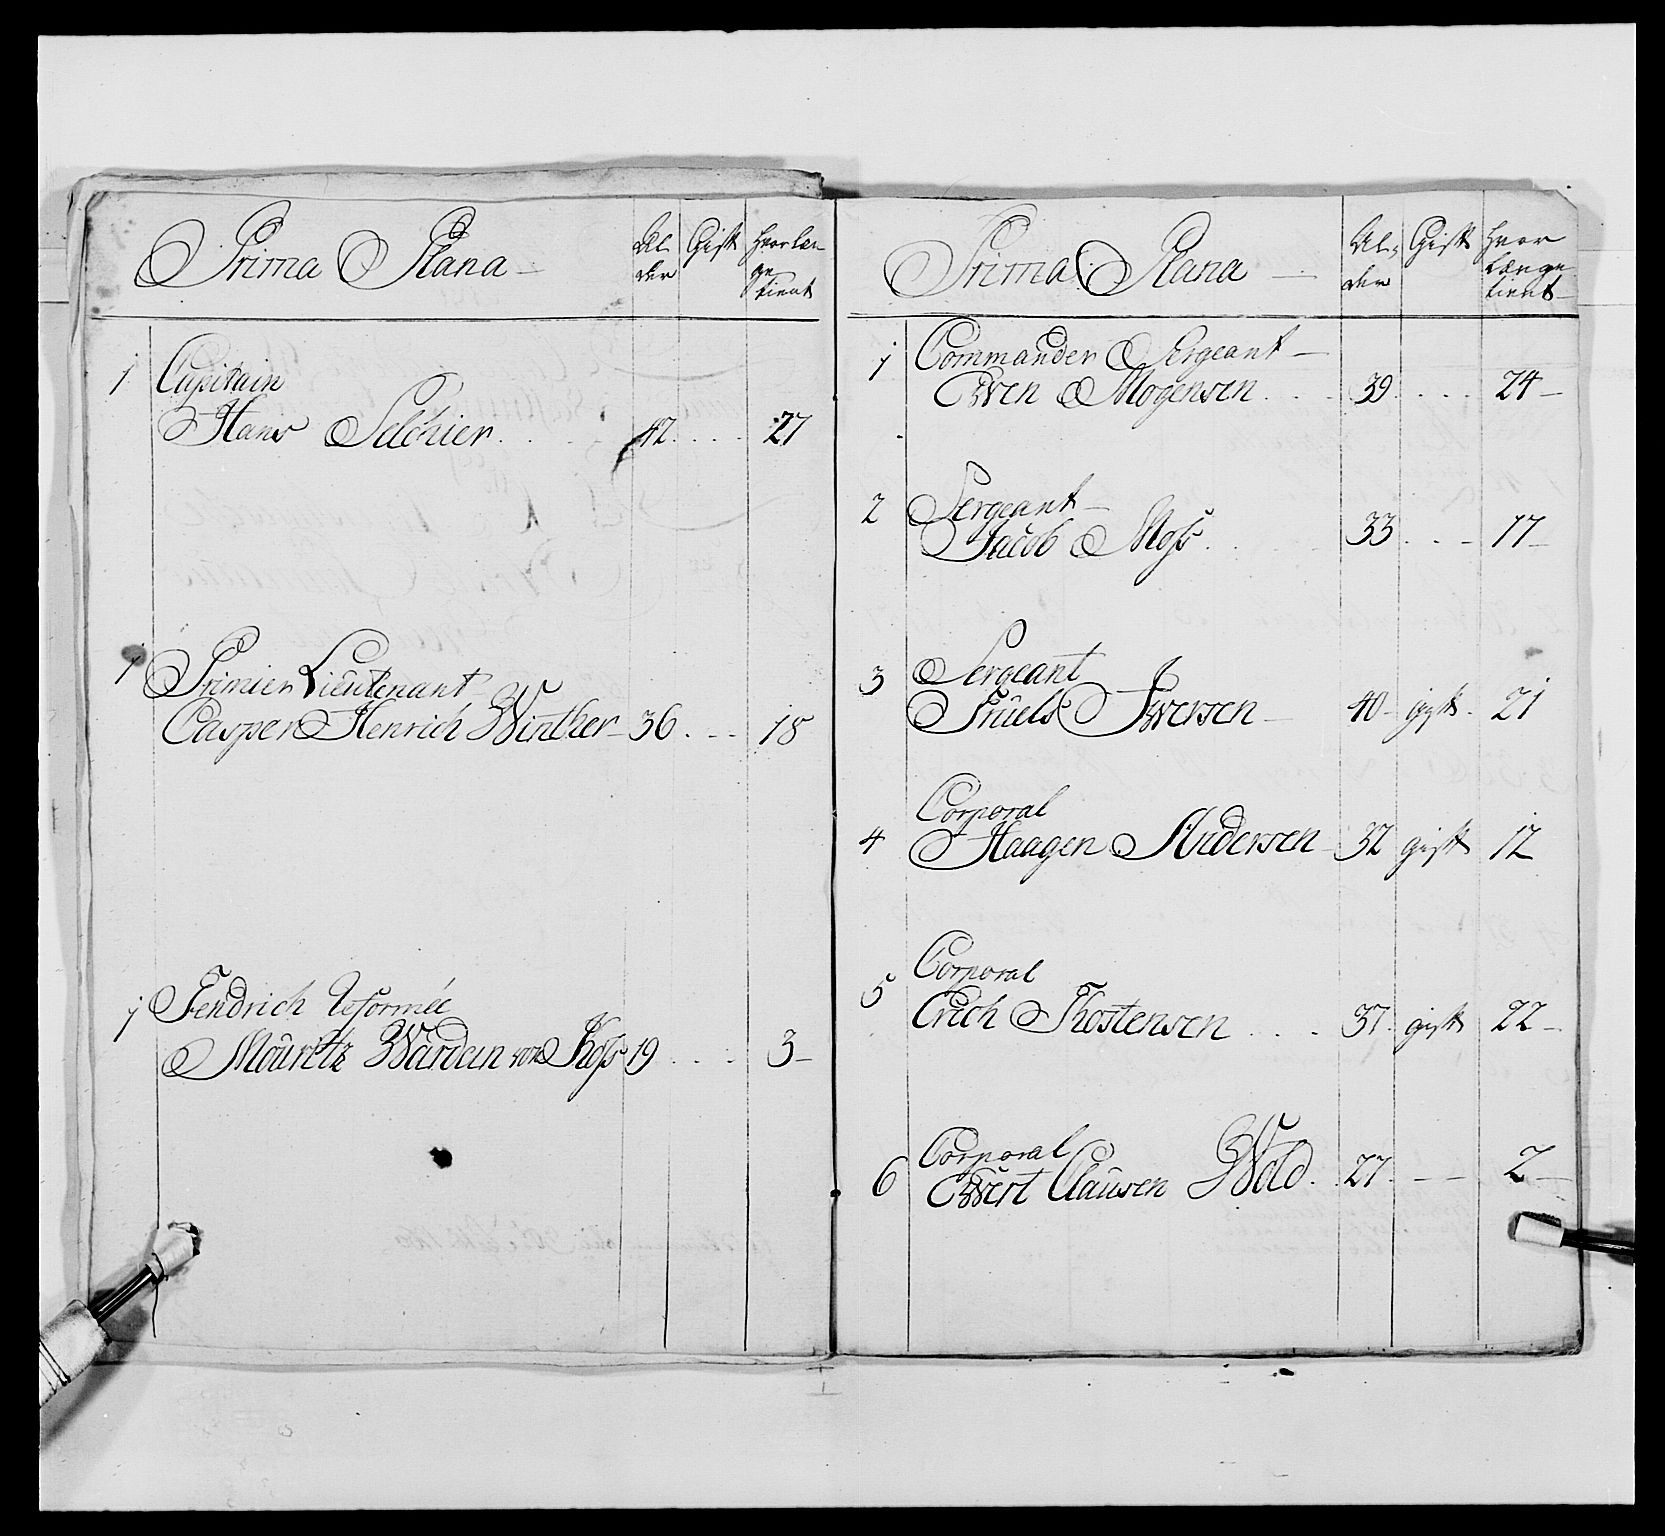 Prima Plana — Al der Gift Hvor læn ge tient
1 Capitain
Hans Selchier . . . 42 . . . . 27
1 Primier Lieutenant
Casper Henrich Winther — 36 . — — 18
1 Fendrich Reformée
Mouritz Wardein von Koss 19 . . . . 3 —
Prima Plana — Al, der Gift Hvor længe tient —
1 Commander Sergeant —
Swen Mogensen . . . 39 . . . . 24 —
2 Sergeant —
Jacob Moss . . . . 33 . . . — 17 —
3 Sergeant
Truels Iwersen — 40 — gift . 21
4 Corporal
Haagen Andersen — 32 gift 12
5 Corporal
Erich Thostensen . . . 37 . gift 22 —
6 Corporal
Ewert Clausen Wold . . 27 . — — 2 —